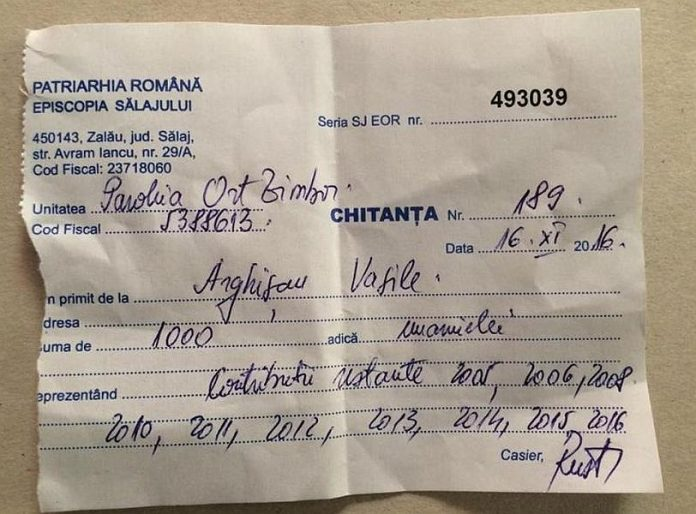 PATRIARHIA ROMÂNĂ
EPISCOPIA SĂLAJULUI
Seria SJ EOR nr. 493039
450143, Zalău, jud. Sălaj,
str. Avram Iancu, nr. 29/A,
Cod Fiscal: 23718060
Unitatea Parohia Ort Zimbor.
Cod Fiscal 5388613.
CHITANȚA Nr. 189.
Data 16. XI 2016.
n primit de la Arghișan Vasile.
dresa
uma de 1000 adică unamielei
eprezentând Contribuții restante 2005, 2006, 2008
2010, 2011, 2012, 2013, 2014, 2015, 2016
Casier,